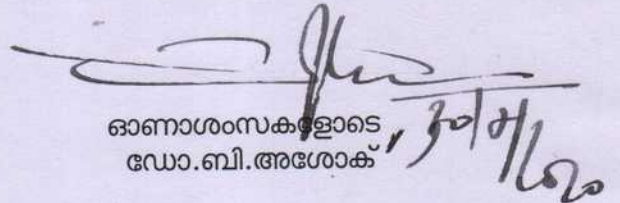 ഓണാശംസകളോടെ
ഡോ.ബി.അശോക്